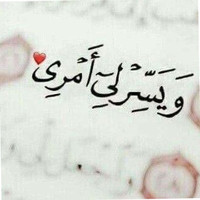 وَيَسِّرۡ لِيٓ أَمۡرِي